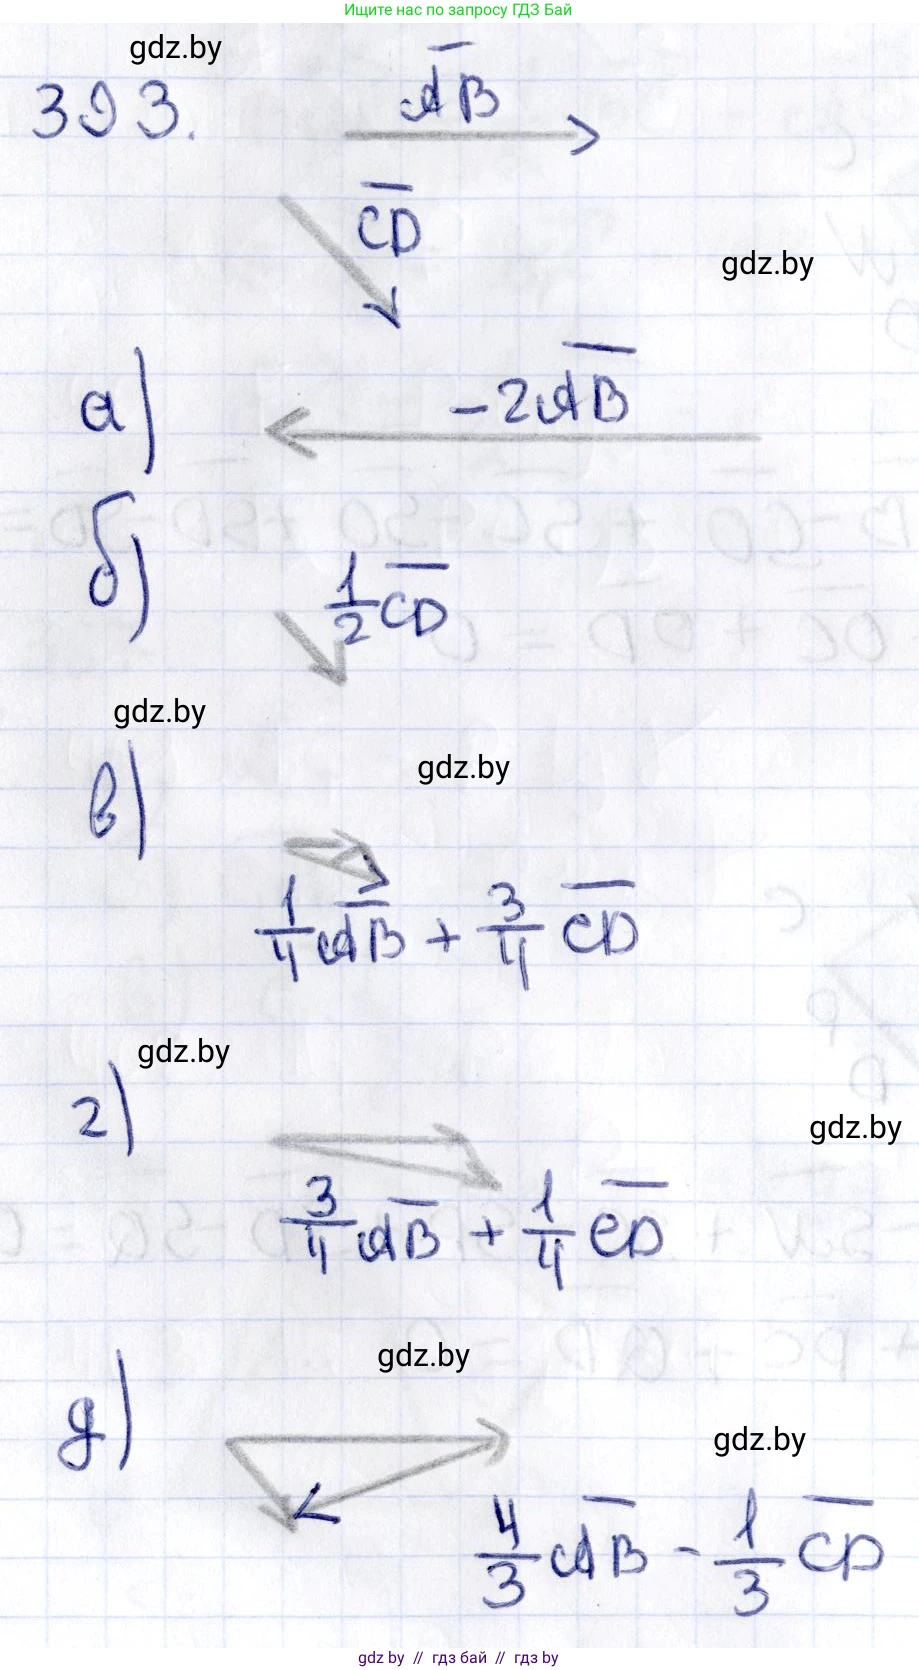 Ищите нас по запросу ГДЗ Бай
gdz.by
393.
AB
CD
gdz.by
а) -2AB
б) 1/2 CD
gdz.by
gdz.by
в)
1/4 AB + 3/4 CD
gdz.by
г)
gdz.by
3/4 AB + 1/4 CD
gdz.by
д)
gdz.by
4/3 AB - 1/3 CD
gdz.by // гдз бай // гдз by